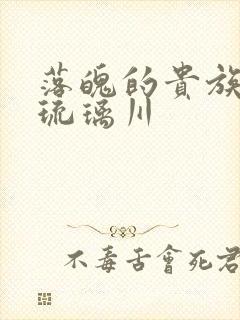 落魄的貴族
琉璃川
不毒舌會死君